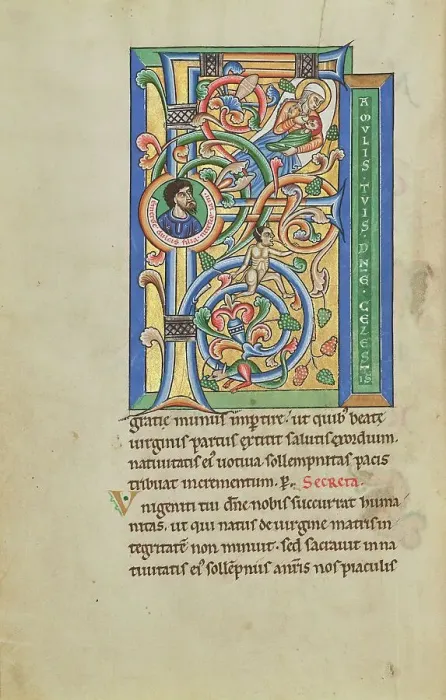 F
AMVLIS·TVIS·DN̄E·CELESTIS
gratię munus impertire. ut quib' beatę
uirginis partus extitit salutis exordium.
natiuitatis ei' uotiua sollempnitas pacis
tribuat incrementum. P. Secreta.
Vnigeniti tui dn̄e nobis succurrat huma
nitas. ut qui natus de uirgine matris in
tegritatē non minuit. sed sacrauit in na
tiuitatis ei' sollēpniis nos piaculis